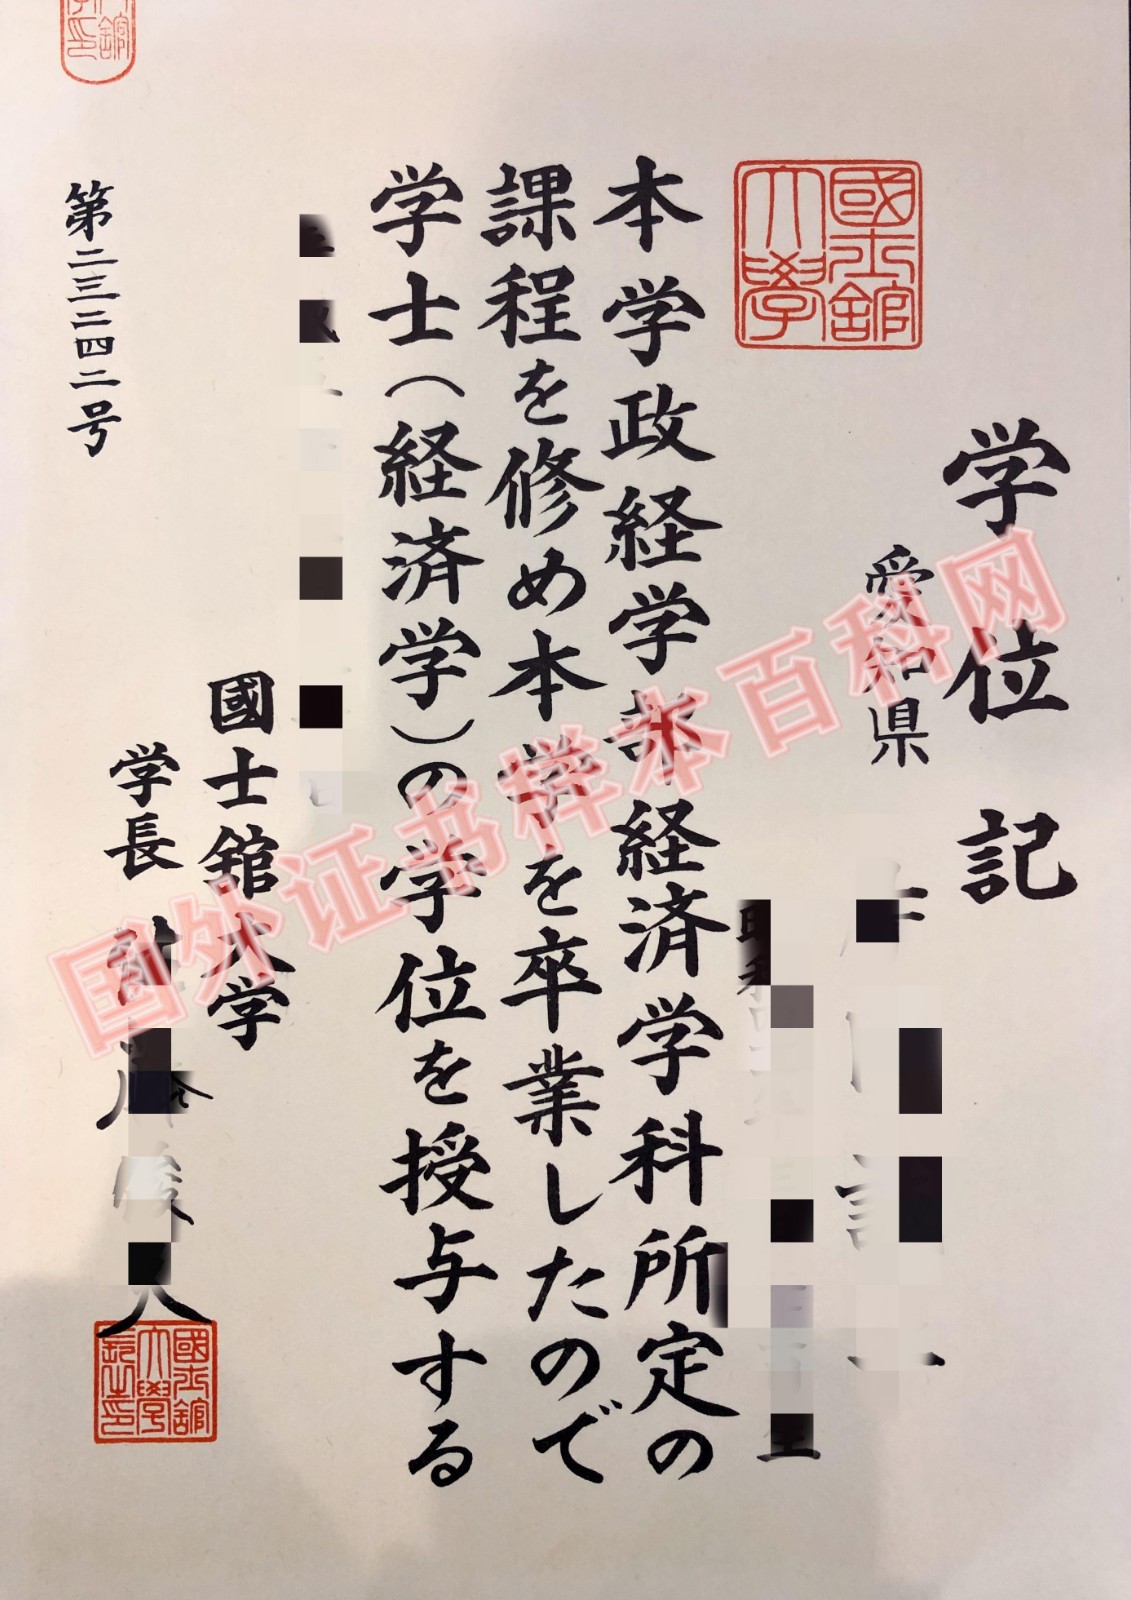 学位記
愛知県
國士舘大學
本学政経学部経済学科所定の
課程を修め本学を卒業したので
学士(経済学)の学位を授与する
國士舘大学
学長
第二三二四二号
国外证书样本百科网